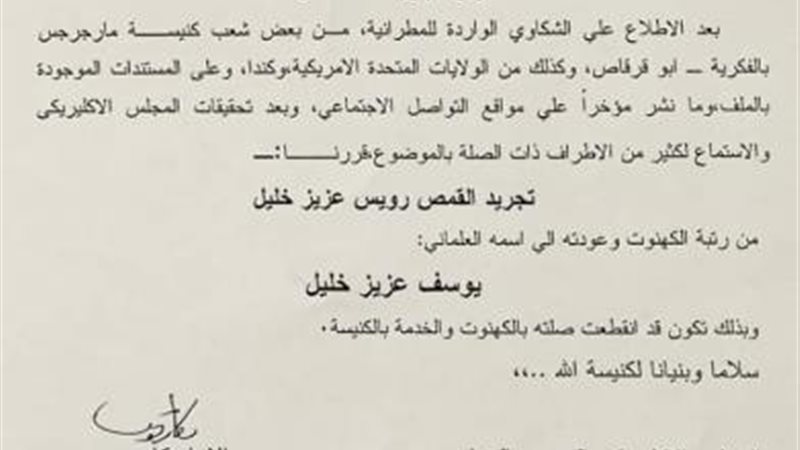 بعد الاطلاع علي الشكاوي الواردة للمطرانية، مـن بعض شعب كنيســة مارجرجس
بالفكرية ــ ابو قرقاص، وكذلك من الولايات المتحدة الامريكية،وكندا، وعلى المستندات الموجودة
بالملف،وما نشر مؤخراً علي مواقع التواصل الاجتماعي، وبعد تحقيقات المجلس الاكليريكى
والاستماع لكثير من الاطراف ذات الصلة بالموضوع،قررنـــــا:ــ
تجريد القمص رويس عزيز خليل
من رتبة الكهنوت وعودته الي اسمه العلماني:
يوسف عزيز خليل
وبذلك تكون قد انقطعت صلته بالكهنوت والخدمة بالكنيسة.
سلاما وبنيانا لكنيسة الله ..،،